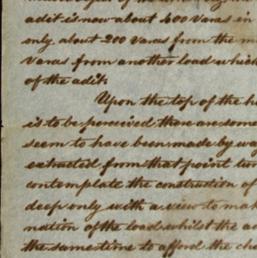 adit is now about 400 varas in
only about 200 varas from the m
varas from another load which
of the adit.
Upon the top of the h
is to be perceived there are some
seem to have been made by wa
extracted from that point two
contemplate the construction of
deep only with a view to mak
nation of the load whilst the a
the same time to afford the cha